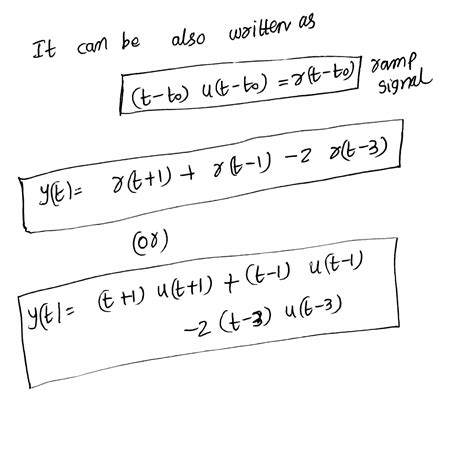 It can be also written as
(t-t₀) u(t-t₀) = r(t-t₀) ramp signal
y(t) = r(t+1) + r(t-1) -2 r(t-3)
(or)
y(t) = (t+1) u(t+1) + (t-1) u(t-1)
-2 (t-3) u(t-3)